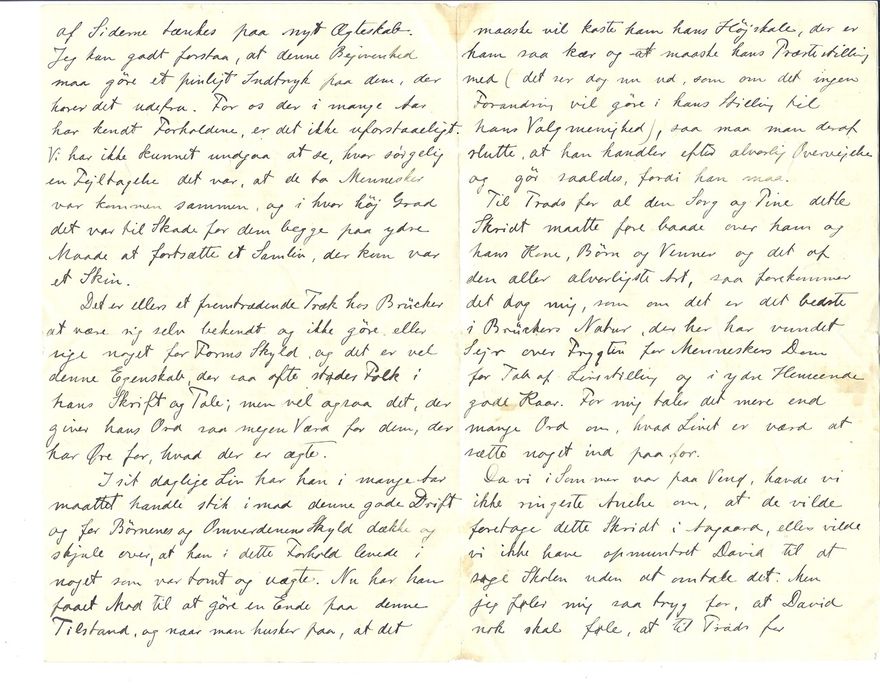 af Siderne tænkes paa nyt Ægteskab.
Jeg kan godt forstaa, at denne Begivenhed
maa göre et pinligt Indtryk paa dem, der
hører det udefra. For os der i mange Aar
har kendt Forholdene, er det ikke uforstaaeligt.
Vi har ikke kunnet undgaa at se, hvor sørgelig
en Fejltagelse det var, at de to Mennesker
var kommen sammen, og i hvor høj Grad
det var til Skade for dem begge paa ydre
Maade at fortsætte et Samliv, der kun var
et Skin.
Det er ellers et fremtrædende Træk hos Brücker
at være sig selv bekendt og ikke göre eller
sige noget for Forms Skyld, og det er vel
denne Egenskab, der saa ofte støder Folk i
hans Skrift og Tale; men vel ogsaa det, der
giver hans Ord saa megen Værd for dem, der
har Øre for, hvad der er ægte.
I sit daglige Liv har han i mange Aar
maattet handle stik imod denne gode Drift
og for Börnenes og Omverdenens Skyld dække og
skjule over, at han i dette Forhold levede i
noget som var tomt og uægte. Nu har han
faaet Mod til at göre en Ende paa denne
Tilstand, og naar man husker paa, at det
maaske vil koste ham hans Højskole, der er
ham saa kær og maaske hans Præstestilling
med (det ser dog nu ud, som om det ingen
Forandring vil göre i hans Stilling til
hans Valgmenighed), saa maa man deraf
slutte, at han handler efter alvorlig Overvejelse
og gör saaledes, fordi han maa.
Til Trods for al den Sorg og Pine dette
Skridt maatte føre baade over ham og
hans Kone, Börn og Venner og det af
den aller alvorligste Art, saa forekommer
det dog mig, som om det er det bedste
i Brückers Natur, der her har vundet
Sejr over Frygten for Menneskers Dom
for Tab af Livsstilling og i ydre Henseende
gode Kaar. For mig taler det mere end
mange Ord om, hvad Livet er værd at
sætte noget ind paa for.
Da vi i Sommer var paa Veng, havde vi
ikke ringeste Anelse om, at de vilde
foretage dette Skridt i Aagaard, ellers vilde
vi ikke have opmuntret David til at
søge Skolen uden at omtale det. Men
jeg føler mig saa tryg for, at David
nok skal føle, at til Trods for